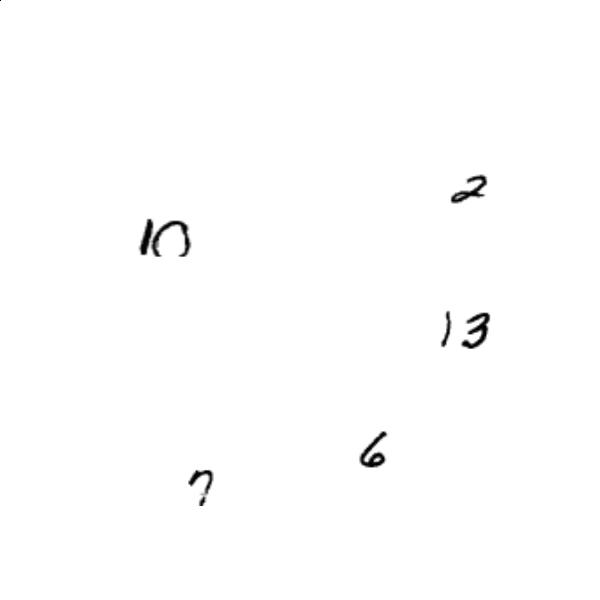 2
10
13
6
7